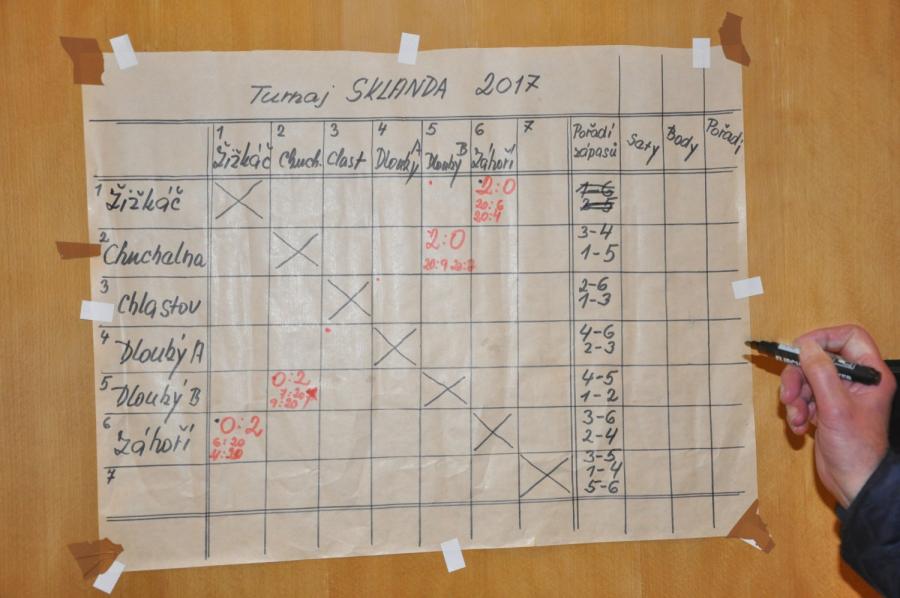 Turnaj SKLANDA 2017
1 2 3 4 5 6 7 Pořadí zápasů Saty Body Pořadí
Žižkáč Chuch. Clast Dlouhý A Dlouhý B Záhoří
1 Žižkáč 2:0 1-6
20:6
20:4 2-5
2 Chuchelna 2:0 3-4
20:9 1-5
3 Chlastov 2-6
1-3
4 Dlouhý A 4-6
2-3
5 Dlouhý B 0:2 4-5
7:20
9:20 1-2
6 Záhoří 0:2 3-6
6:20
4:20 2-4
7 3-5
1-4
5-6